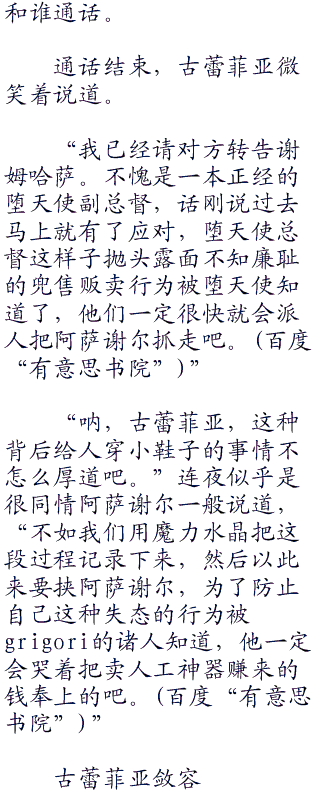 和谁通话。
通话结束，古蕾菲亚微
笑着说道。
“我已经请对方转告谢
姆哈萨。不愧是一本正经的
堕天使副总督，话刚说过去
马上就有了应对，堕天使总
督这样子抛头露面不知廉耻
的兜售贩卖行为被堕天使知
道了，他们一定很快就会派
人把阿萨谢尔抓走吧。(百度
“有意思书院”)”
“呐，古蕾菲亚，这种
背后给人穿小鞋子的事情不
怎么厚道吧。”连夜似乎是
很同情阿萨谢尔一般说道，
“不如我们用魔力水晶把这
段过程记录下来，然后以此
来要挟阿萨谢尔，为了防止
自己这种失态的行为被
grigori的诸人知道，他一定
会哭着把卖人工神器赚来的
钱奉上的吧。(百度“有意思
书院”)”
古蕾菲亚敛容